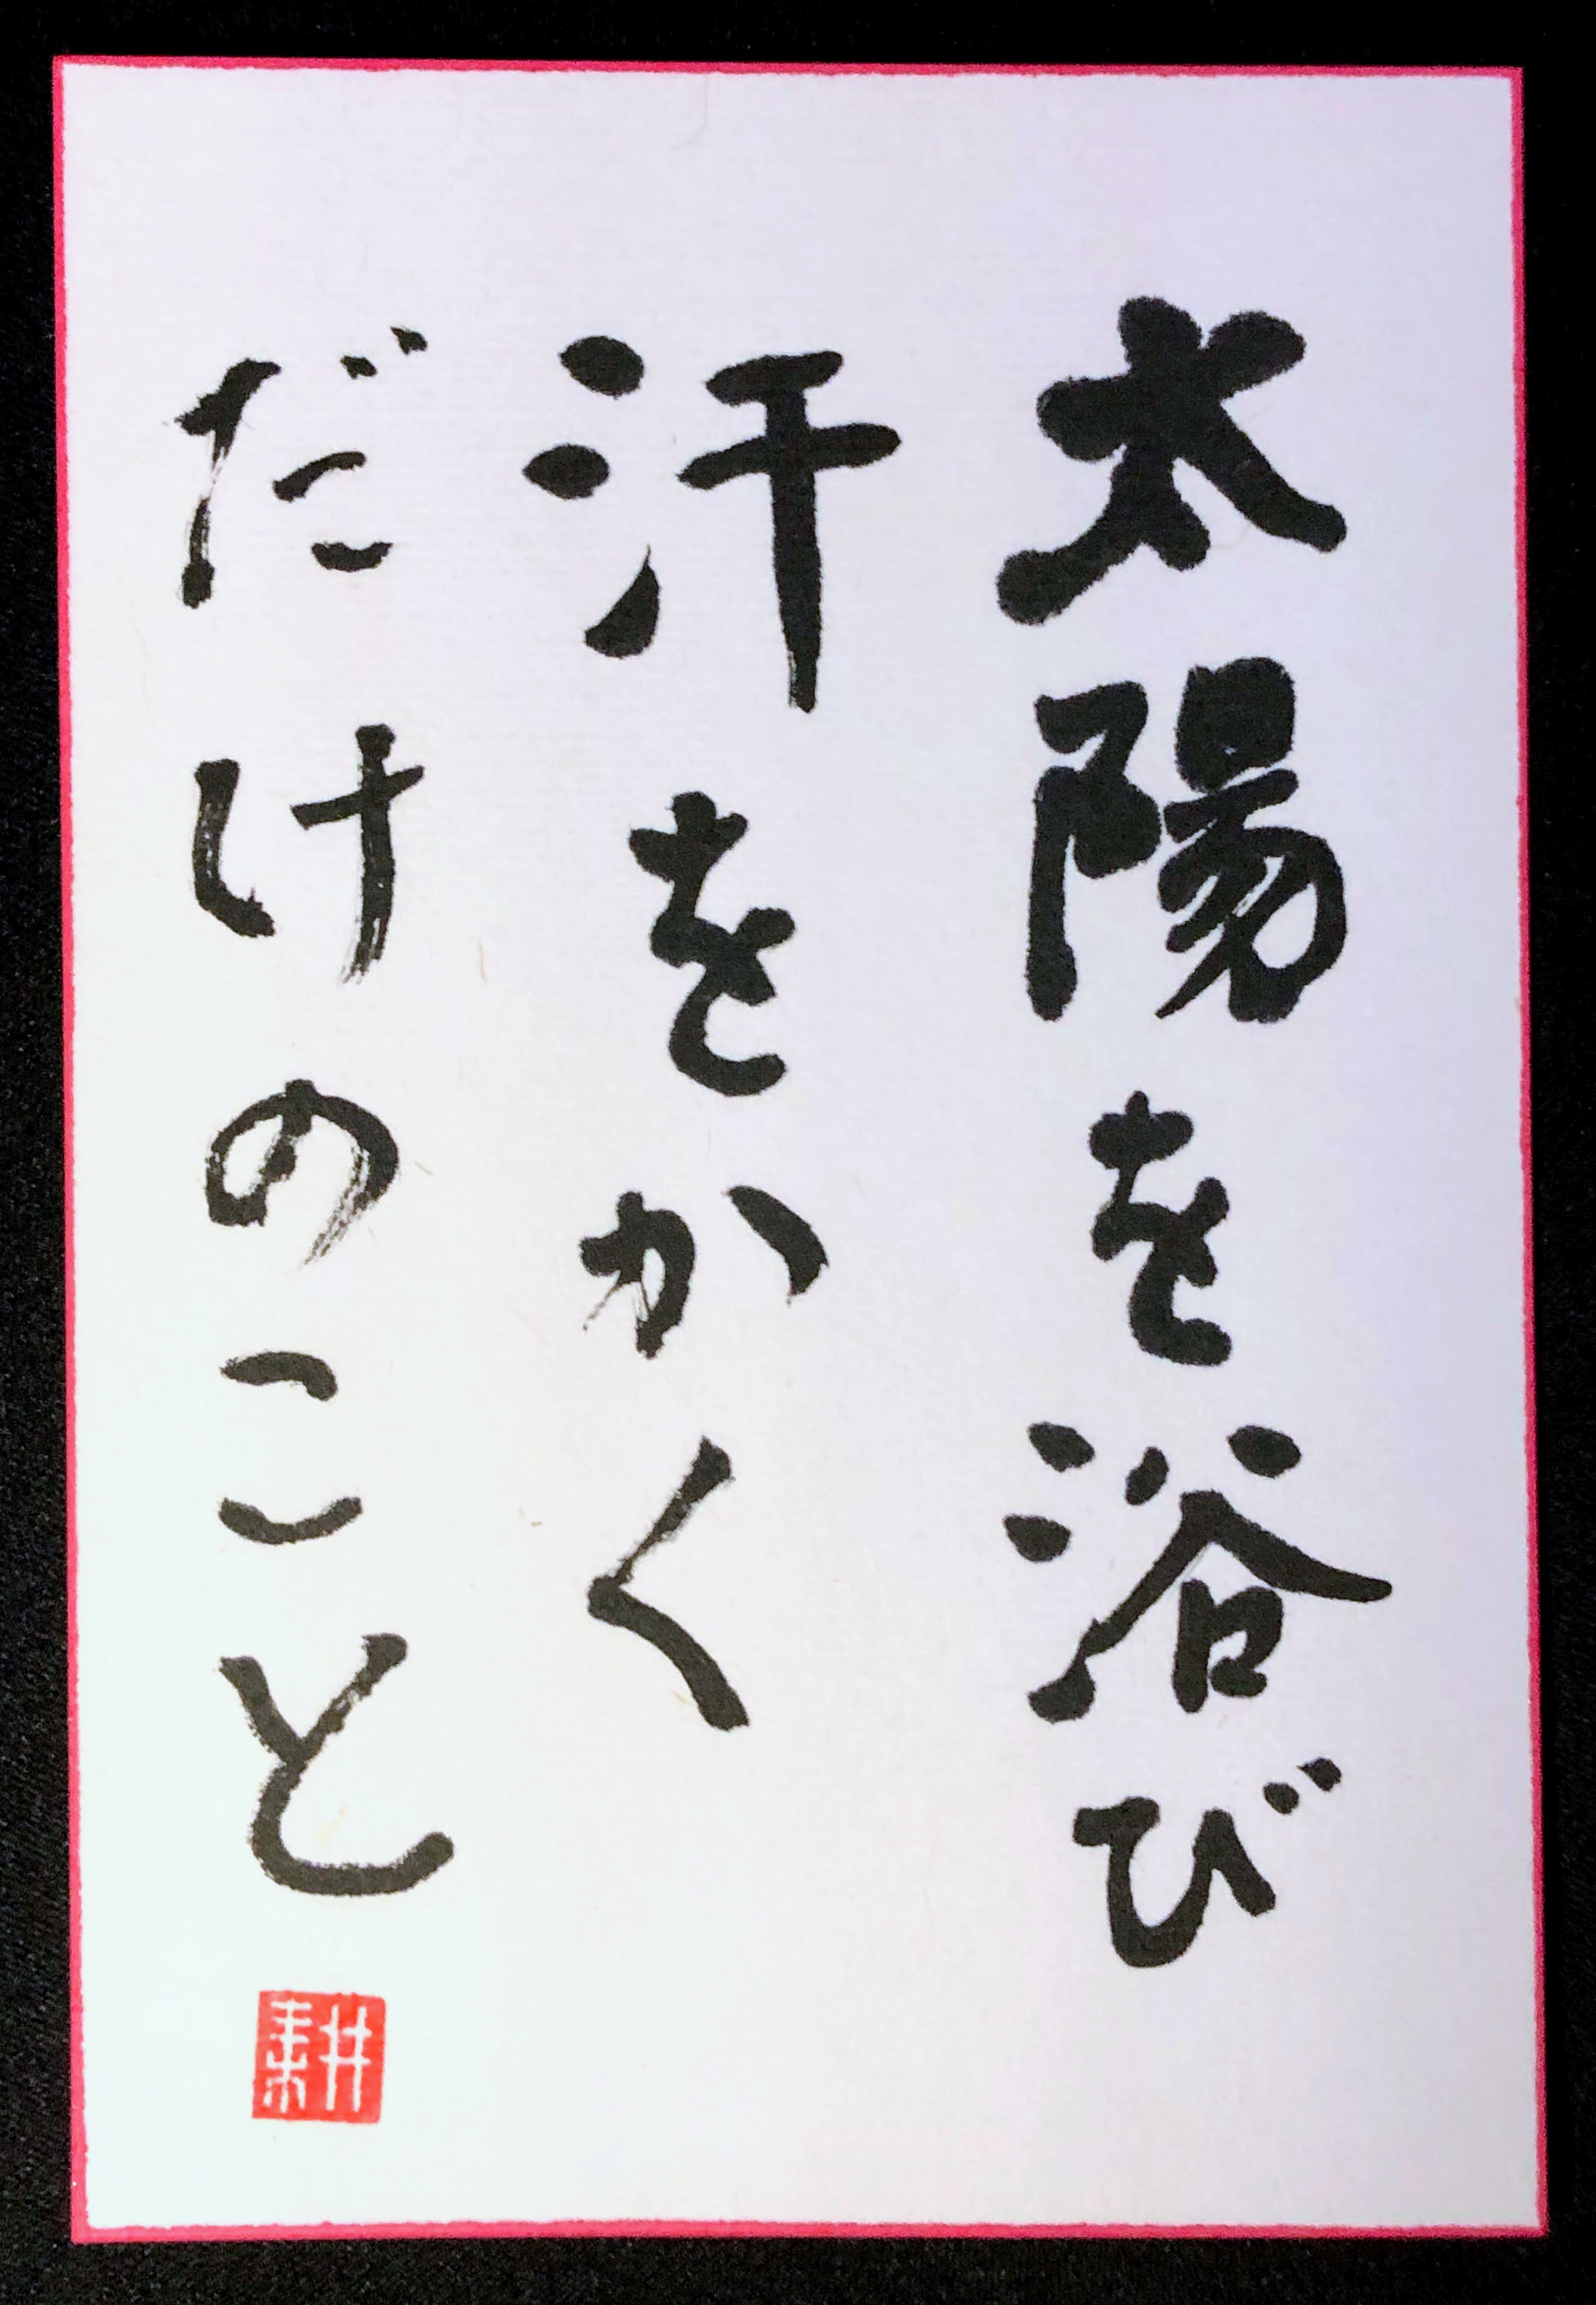 太陽を浴び
汗をかく
だけのこと
耕